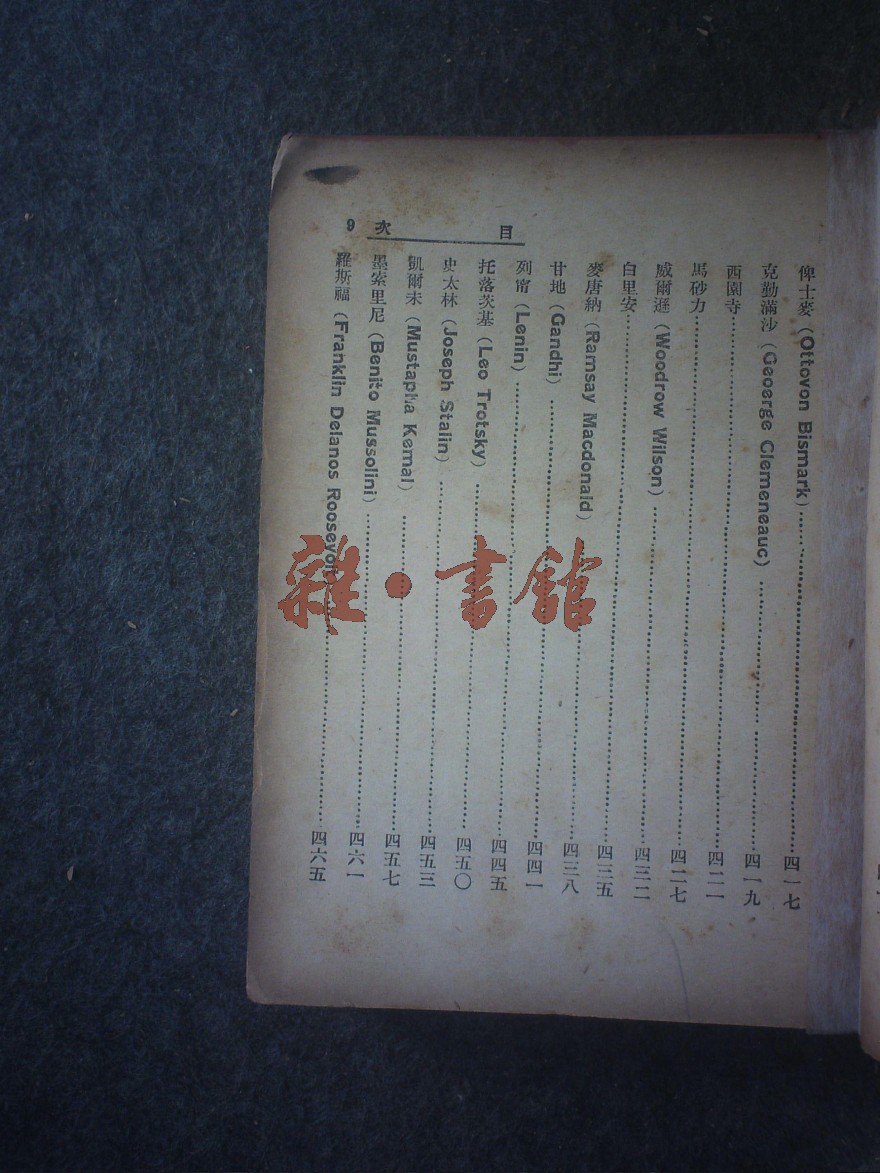 目次 9
俾士麥 (Ottovon Bismark)……四一七
克勤滿沙 (Geoerge Clemeneauc)……四一九
西園寺……四二一
馬砂力……四二七
威爾遜 (Woodrow Wilson)……四三二
白里安……四三五
麥唐納 (Ramsay Macdonald)……四三八
甘地 (Gandhi)……四四一
列甯 (Lenin)……四四五
托落茨基 (Leo Trotsky)……四五〇
史太林 (Joseph Stalin)……四五三
凱爾末 (Mustapha Kemal)……四五七
墨索里尼 (Benito Mussolini)……四六一
羅斯福 (Franklin Delanos Roosevolt)……四六五
雜·書館